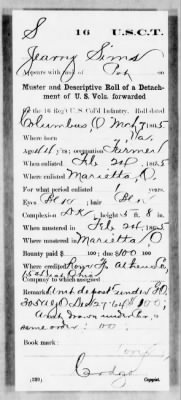 S 16 U.S.C.T.
Jeamy Sims
Appears with rank of on
Muster and Descriptive Roll of a Detach-
ment of U. S. Vols. forwarded
to the 16 Reg't U.S. Col'd Infantry. Roll dated
Columbus, O Mch 7, 1865
Where born Va.
Age y'rs; occupation Farmer
When enlisted Feb 24, 1865
Where enlisted Marietta, O.
For what period enlisted 1 years
Eyes Black; hair Black
Complexion DK; height 5 ft. 8 in.
When mustered in Feb 24, 1865
Where mustered in Marietta O
Bounty paid $ 100; due $ 100
Where credited Rome Tp. Athens Co
15" Dist Ohio
Company to which assigned
Remarks: Amt deposit under G.O.
305 A.G.O. Dec 27 '64 $
same order
Book mark:
(339) Copyist.